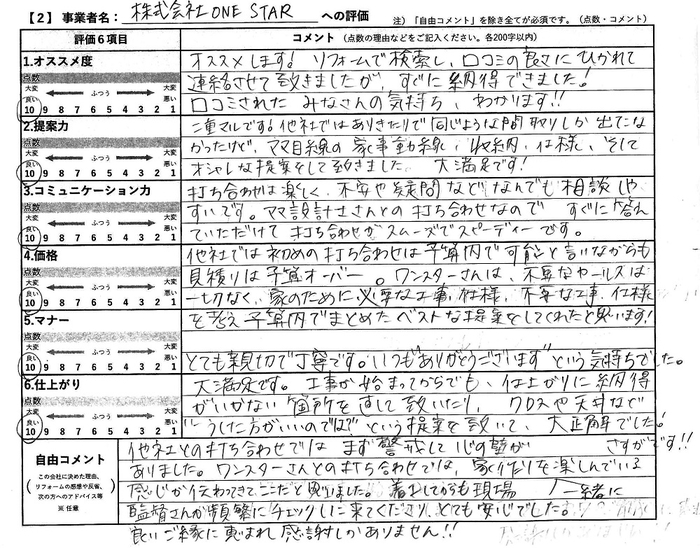 【2】事業者名：株式会社ONE STAR への評価 注）「自由コメント」を除き全てが必須です。（点数・コメント）
評価6項目 コメント（点数の理由などをご記入ください。各200字以内）
1.オススメ度
点数
大変良い ふつう 大変悪い
10 9 8 7 6 5 4 3 2 1
オススメします！ リフォームで検索し、口コミの良さにひかれて
連絡させて頂きましたが、すぐに納得できました！
口コミされた みなさんの気持ち、わかります!!
2.提案力
点数
大変良い ふつう 大変悪い
10 9 8 7 6 5 4 3 2 1
二重マルです！他社ではありきたりで同じような間取りしか出てこな
かったけど、ママ目線の家事動線、収納、仕様、そして
オシャレな提案をして頂きました。 大満足です！
3.コミュニケーション力
点数
大変良い ふつう 大変悪い
10 9 8 7 6 5 4 3 2 1
打ち合わせは楽しく、不安や疑問など、なんでも相談しや
すいです。ママ設計士さんとの打ち合わせなので すぐに答え
ていただけて 打ち合わせがスムーズでスピーディーです。
4.価格
点数
大変良い ふつう 大変悪い
10 9 8 7 6 5 4 3 2 1
他社では初めの打ち合わせは予算内で可能と言いながらも
見積りは予算オーバー。ワンスターさんは、不要なセールスは
一切なく、家のために必要な工事、仕様、不要な工事、仕様
を考え 予算内でまとめたベストな提案をしてくれたと思います！
5.マナー
点数
大変良い ふつう 大変悪い
10 9 8 7 6 5 4 3 2 1
とても親切で丁寧です。いつも"ありがとうございます"という気持ちでした。
6.仕上がり
点数
大変良い ふつう 大変悪い
10 9 8 7 6 5 4 3 2 1
大満足です。工事が始まってからでも、仕上がりに納得
がいかない箇所を直して頂いたり、クロスや天井など
"こうした方がいいのでは?"という提案を頂いて、大正解でした！
さすがです!!
自由コメント
（この会社に決めた理由、
リフォームの感想や反省、
次の方へのアドバイス等）
※任意
他社との打ち合わせでは まず警戒して心の壁が
ありました。ワンスターさんとの打ち合わせでは、家作りを楽しんでいる
感じが伝わってきて ここだと思いました。着工してからも現場
監督さんが頻繁にチェックしに来てくださり、とても安心でした。
一緒に
良いご縁に恵まれ 感謝しかありません!!